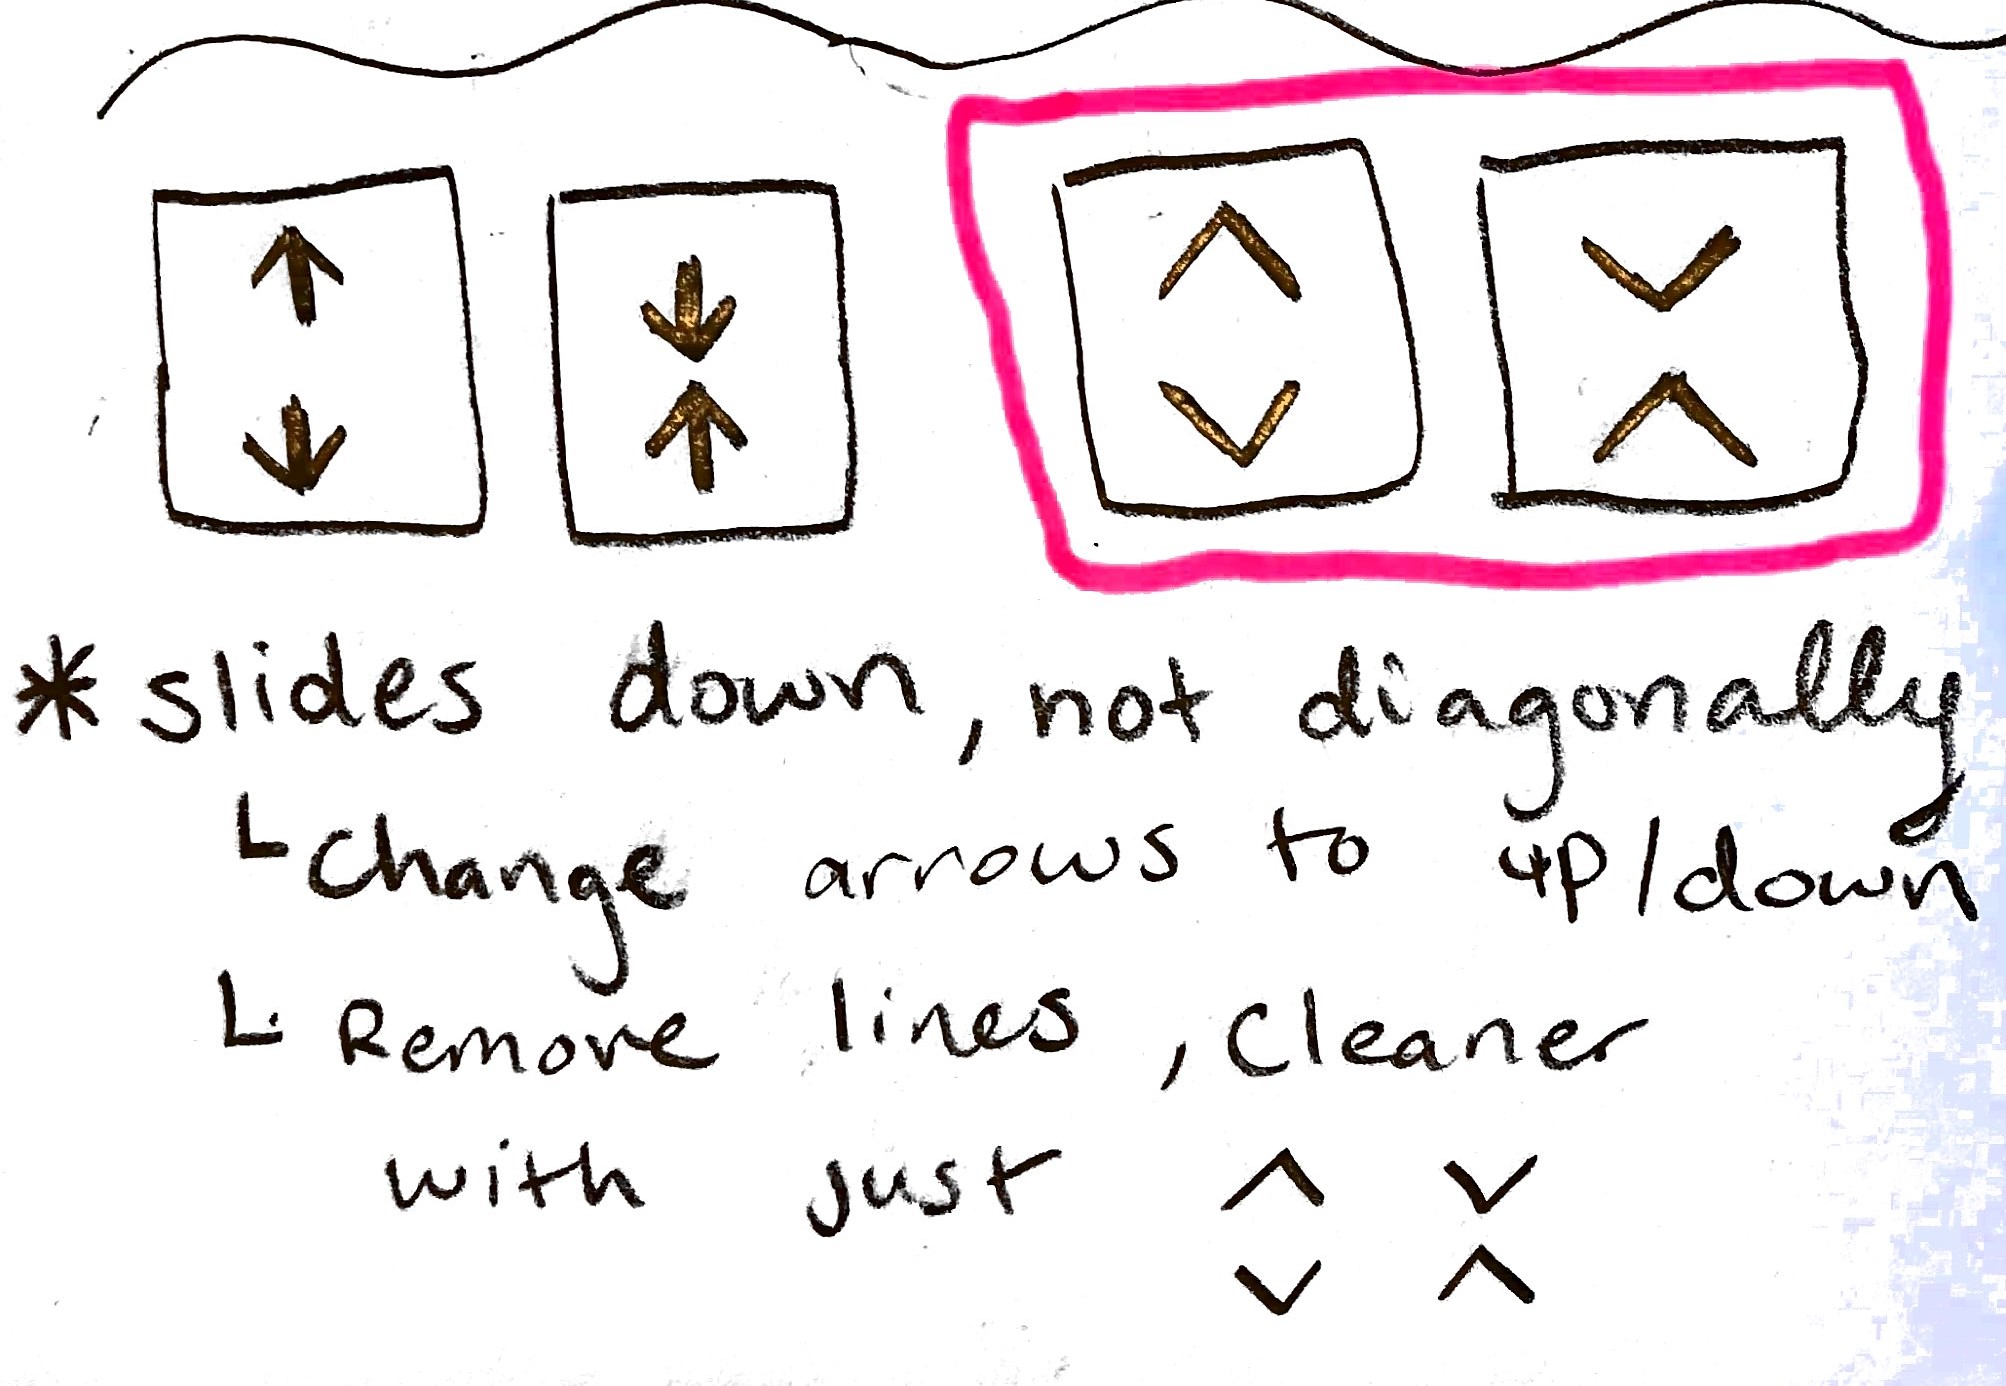 * slides down, not diagonally
└ Change arrows to up/down
└ Remove lines, cleaner
with just ^ v
v ^